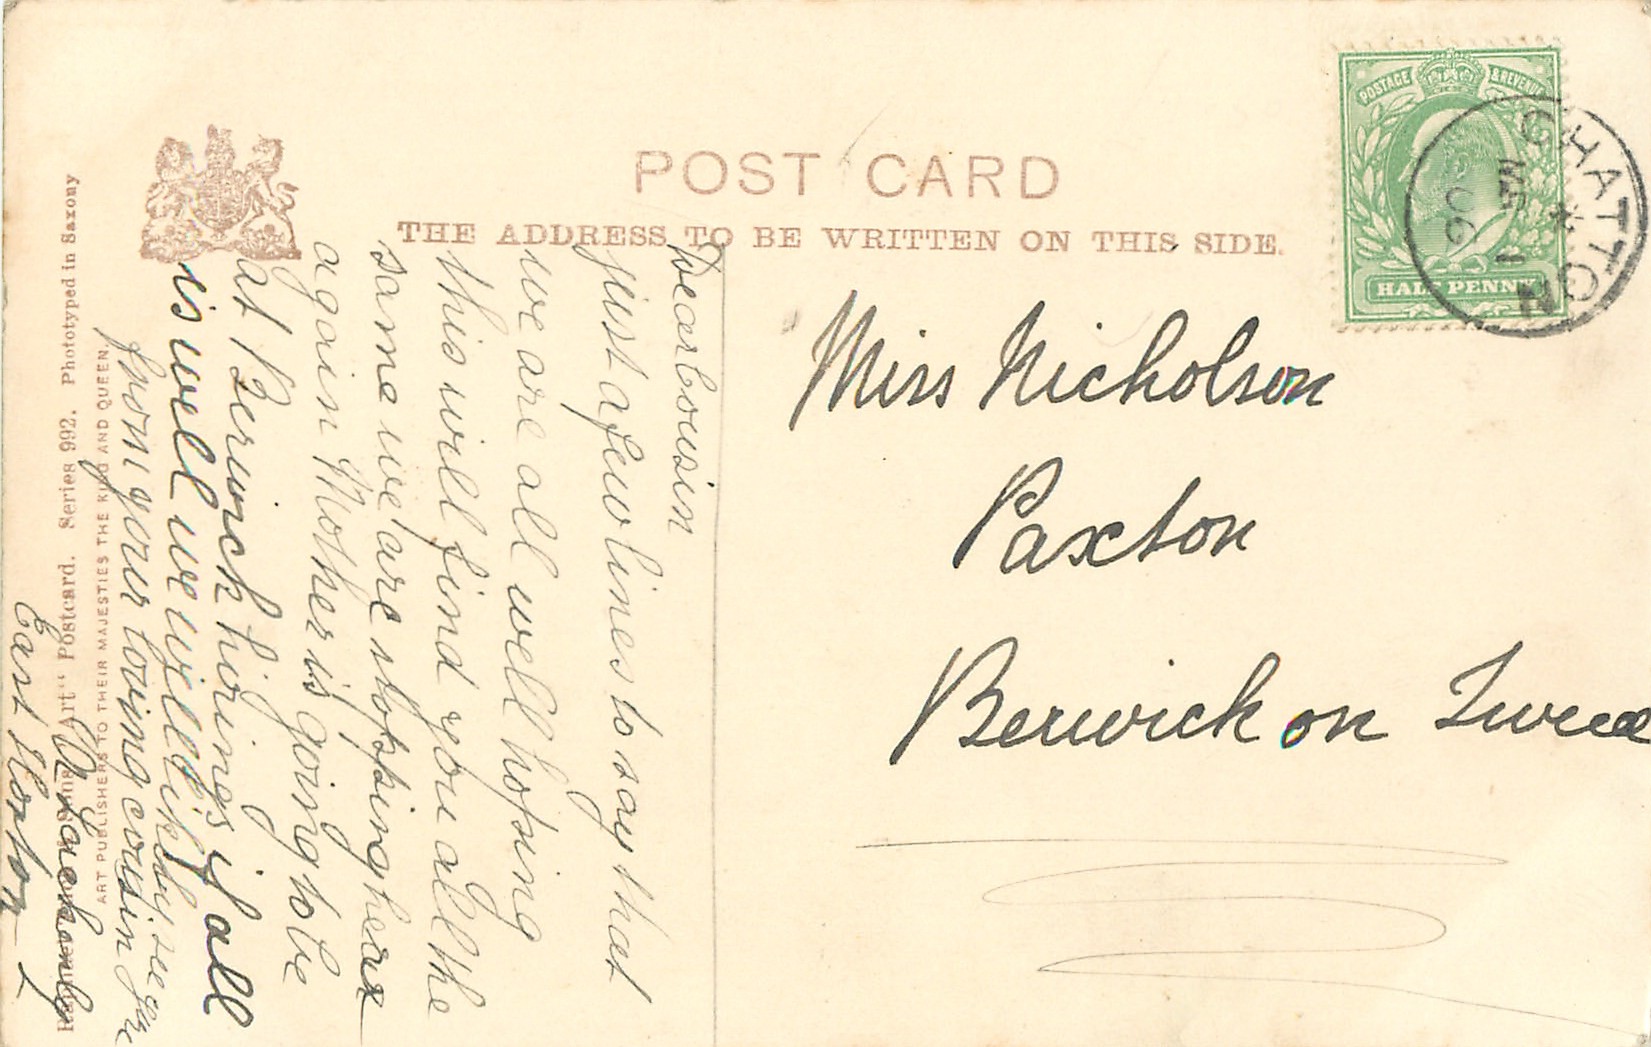 POST CARD
THE ADDRESS TO BE WRITTEN ON THIS SIDE.
POSTAGE & REVENUE
HALF PENNY
CHATTON
MR 1
06
Miss Nicholson
Paxton
Berwick on Tweed
Dear Cousin
just a few lines to say that
we are all well hoping
this will find you all the
same we are stopping here
again Mother is going to be
at Berwick hirings if all
is well we will likly see you
from your loving cousin
East Horton
Raphael Tuck & Sons "Art" Postcard. Series 992. Phototyped in Saxony
ART PUBLISHERS TO THEIR MAJESTIES THE KING AND QUEEN.